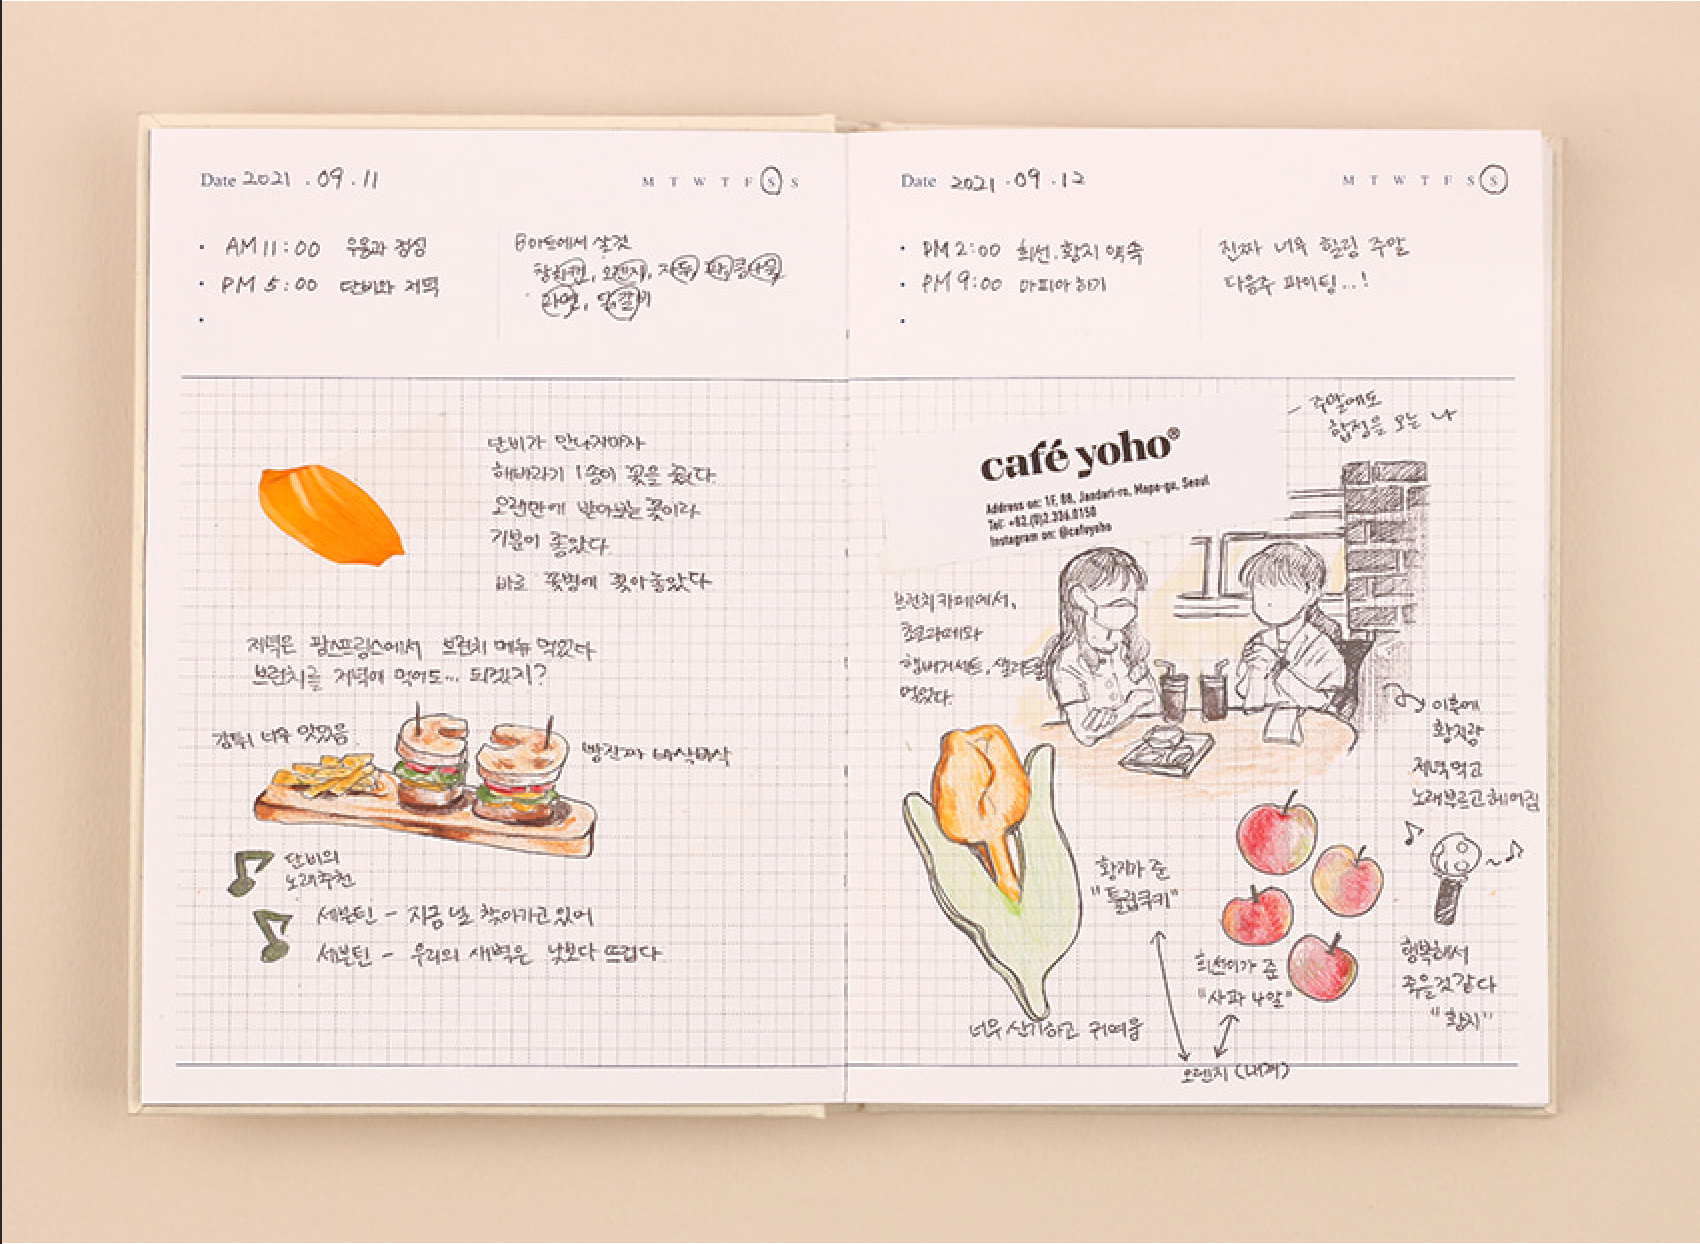 Date 2021 . 09 . 11
M T W T F S S
· AM 11:00 우용과 점심
· PM 5:00 단비와 저녁
·
B마트에서 살것
오렌지, 자두
닭갈비
단비가 만나자마자
해바라기 1송이 꽃을 줬다.
오랜만에 받아보는 꽃이라
기분이 좋았다.
바로 꽃병에 꽂아놓았다
저녁은 팜스프링스에서 브런치 메뉴 먹었다
브런치를 저녁에 먹어도... 되겠지?
감튀 너무 맛있음
빵진짜 바삭바삭
단비의
노래추천
세븐틴 - 지금 널 찾아가고 있어
세븐틴 - 우리의 새벽은 낮보다 뜨겁다
Date 2021 . 09 . 12
M T W T F S S
· PM 2:00 희선, 황지 약속
· PM 9:00 마피아 하기
·
진짜 너무 힐링 주말
다음주 파이팅...!
- 주말에도
합정을 오는 나
café yoho®
Address on: 1F, 88, Jandari-ro, Mapo-gu, Seoul
Tel: +82.(0)2.336.0150
Instagram on: @cafeyoho
브런치 카페에서,
초코라떼와
햄버거세트, 샐러드를
먹었다.
이후에
황지랑
저녁먹고
노래부르고 헤어짐
황지가 준
"튤립쿠키"
희선이가 준
"사과 4알"
행복해서
죽을것 같다
"황지"
너무 신기하고 귀여움
오렌지 (내꺼)